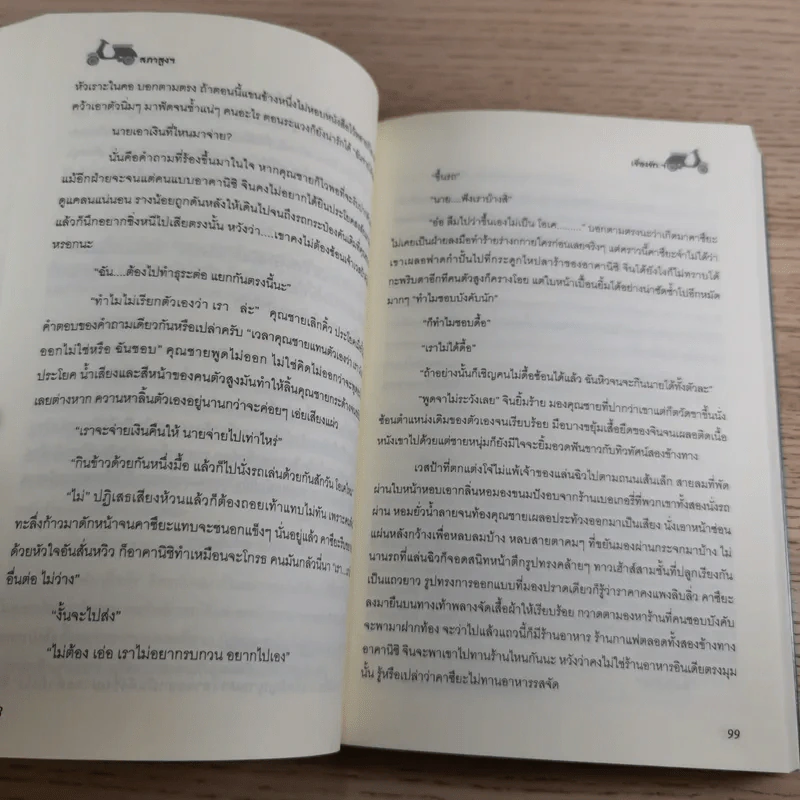 สภาสูงฯ
หัวเราะในคอ บอกตามตรง ถ้าตอนนี้แขนข้างหนึ่งไม่หอบหนังสือ
คว้าเอาตัวนิ่มๆ มาฟัดจนช้ำแน่ๆ คนอะไร ตอนระแวงก็ยังน่ารักได้
นายเอาเงินที่ไหนมาจ่าย?
นั่นคือคำถามที่ร้องขึ้นมาในใจ หากคุณชายก็ไวพอที่จะ
แม้อีกฝ่ายจะจนแต่คนแบบอาคานิชิ จินคงไม่อยากได้ยินประโยค
ดูแคลนแน่นอน ร่างน้อยถูกดันหลังให้เดินไปจนถึงรถกระป๋องคันเดิม
แล้วก็นึกอยากซิ่งหนีไปเสียตรงนั้น หวังว่า.....เขาคงไม่ต้องซ้อนเจ้า
หรอกนะ
“ฉัน....ต้องไปทำธุระต่อ แยกกันตรงนี้นะ”
“ทำไมไม่เรียกตัวเองว่า เรา ล่ะ” คุณชายเลิกคิ้ว ประโยค
คำตอบของคำถามเดียวกันหรือเปล่าครับ “เวลาคุณชายแทนตัวเองว่า เรา
ออกไม่ใช่หรือ ฉันชอบ” คุณชายพูดไม่ออก ไม่ใช่คิดไม่ออกว่าจะ
ประโยค น้ำเสียงและสีหน้าของคนตัวสูงมันทำให้ลิ้นคุณชายกระด้าง
เลยต่างหาก ควานหาลิ้นตัวเองอยู่นานกว่าจะค่อยๆ เอ่ยเสียงแผ่ว
“เราจะจ่ายเงินคืนให้ นายจ่ายไปเท่าไหร่”
“กินข้าวด้วยกันหนึ่งมื้อ แล้วก็ไปนั่งรถเล่นด้วยกันสักวัน
“ไม่” ปฏิเสธเสียงห้วนแล้วก็ต้องถอยเท้าแทบไม่ทัน เพราะ
ทะลึ่งก้าวมาดักหน้าจนคาซึยะแทบจะชนอกแข็งๆ นั่นอยู่แล้ว คาซึยะ
ด้วยหัวใจอันสั่นหวิว ก็อาคานิชิทำเหมือนจะโกรธ คนมันกลัวนี่นา “เรา...
อื่นต่อ ไม่ว่าง”
“งั้นจะไปส่ง”
“ไม่ต้อง เอ่อ เราไม่อยากรบกวน อยากไปเอง”
เจื่องรัก
“ขึ้นรถ”
“นาย....ฟังเราบ้างสิ”
“อ๋อ ลืมไปว่าขึ้นเองไม่เป็น โอเค..........” บอกตามตรงนะว่าเกิดมาคาซึยะ
ไม่เคยเป็นฝ่ายลงมือทำร้ายร่างกายใครก่อนเลยจริงๆ แต่คราวนี้คาซึยะจำไม่ได้ว่า
เขาเผลอฟาดกำปั้นไปที่กระดูกไหปลาร้าของอาคานิชิ จินได้ยังไงก็ไม่ทราบได้
กะพริบตาอีกทีคนตัวสูงก็ครางโอย แต่ใบหน้าเปื้อนยิ้มได้อย่างน่าซัดซ้ำไปอีกหมัด
มากๆ “ทำไมชอบบังคับนัก”
“ก็ทำไมชอบดื้อ”
“เราไม่ได้ดื้อ”
“ถ้าอย่างนั้นก็เชิญคนไม่ดื้อซ้อนได้แล้ว ฉันหิวจนจะกินนายได้ทั้งตัวละ”
“พูดจาไม่ระวังเลย” จินยิ้มร้าย มองคุณชายที่ปากว่าเขาแต่ก็ตวัดขาขึ้นนั่ง
ซ้อนตำแหน่งเดิมของตัวเองจนเรียบร้อย มือบางขยุ้มเสื้อยืดของจินจนเผลอติดเนื้อ
หนังเขาไปด้วยแต่ชายหนุ่มก็ยังมีใจจะยิ้มอวดฟันขาวกับทิวทัศน์สองข้างทาง
เวสป้าที่ตกแต่งโจ๋ไม่แพ้เจ้าของแล่นฉิวไปตามถนนเส้นเล็ก สายลมที่พัด
ผ่านใบหน้าหอบเอากลิ่นหอมของขนมปังอบจากร้านเบเกอรี่ที่พวกเขาทั้งสองนั่งรถ
ผ่าน หอมยั่วน้ำลายจนท้องคุณชายเผลอประท้วงออกมาเป็นเสียง นั่งเอาหน้าซ่อน
แผ่นหลังกว้างเพื่อหลบลมบ้าง หลบสายตาคมๆ ที่ขยันมองผ่านกระจกมาบ้าง ไม่
นานรถที่แล่นฉิวก็จอดสนิทหน้าตึกรูปทรงคล้ายๆ ทาวเฮ้าส์สามชั้นที่ปลูกเรียงกัน
เป็นแถวยาว รูปทรงการออกแบบที่มองปราดเดียวก็รู้ว่าราคาคงแพงลิบลิ่ว คาซึยะ
ลงมายืนบนทางเท้าพลางจัดเสื้อผ้าให้เรียบร้อย กวาดตามองหาร้านที่คนชอบบังคับ
จะพามาฝากท้อง จะว่าไปแล้วแถวนี้ก็มีร้านอาหาร ร้านกาแฟตลอดทั้งสองข้างทาง
อาคานิชิ จินจะพาเขาไปทานร้านไหนกันนะ หวังว่าคงไม่ใช่ร้านอาหารอินเดียตรงมุม
นั้น รู้หรือเปล่าว่าคาซึยะไม่ทานอาหารรสจัด
99